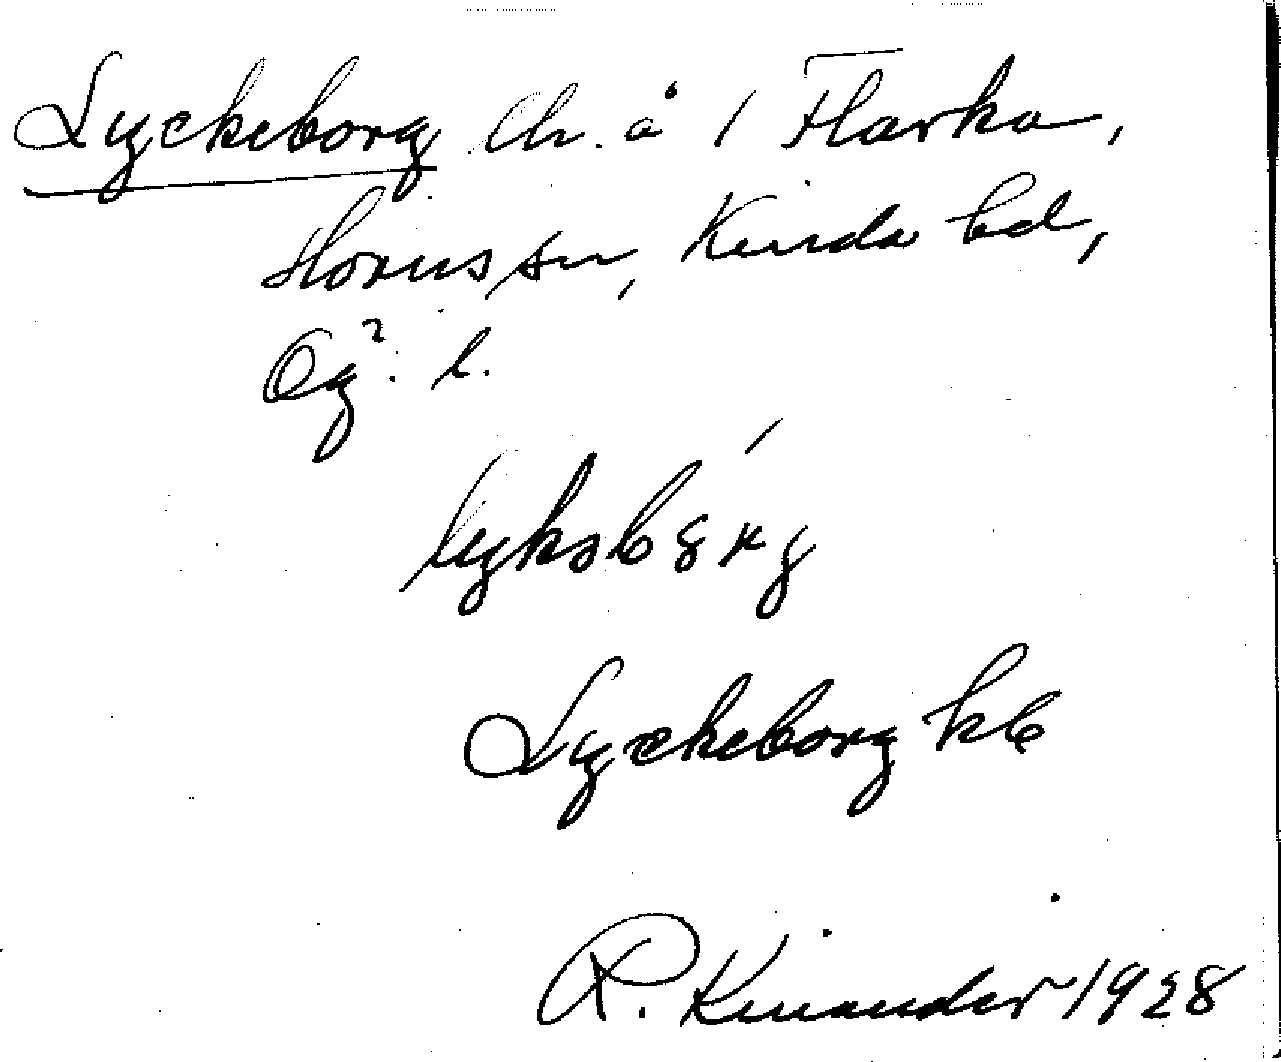 Lyckeborg lh. å 1 Flarka,
Horns sn, Kinda hd,
Ög. l.
Lyckeborg kb
R. Kinander 1928